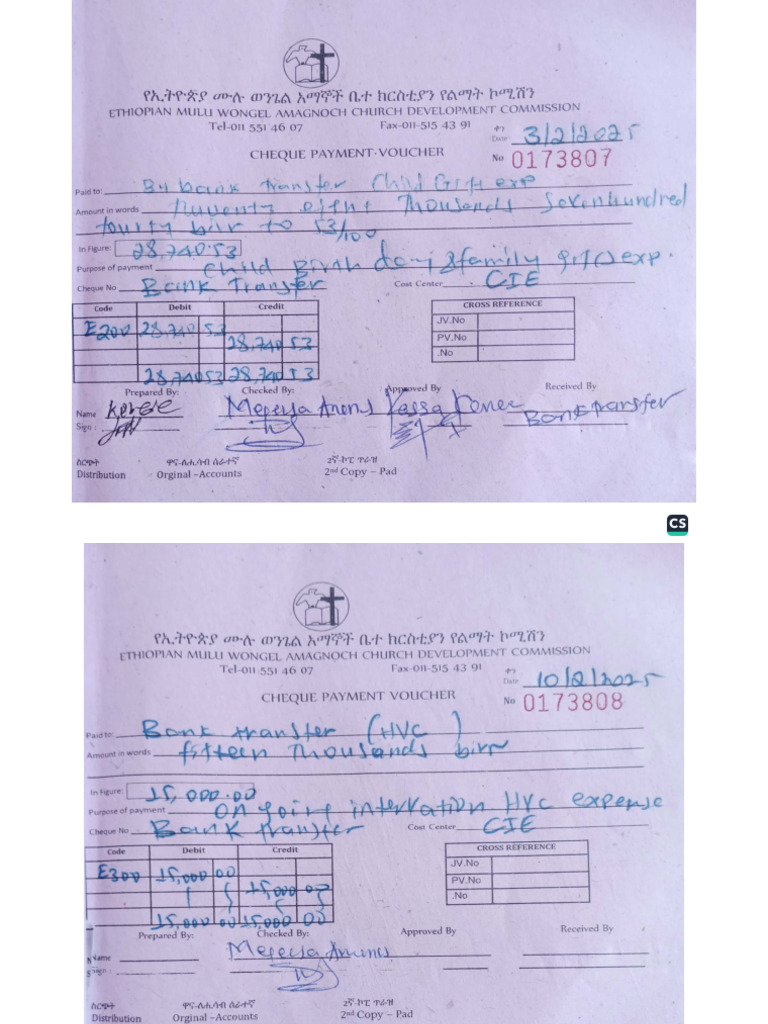 የኢትዮጵያ ሙሉ ወንጌል አማኞች ቤተ ክርስቲያን የልማት ኮሚሽን
ETHIOPIAN MULU WONGEL AMAGNOCH CHURCH DEVELOPMENT COMMISSION
Tel-011 551 46 07 Fax-011-515 43 91
ቀን
Date 3/2/2025
CHEQUE PAYMENT VOUCHER No 0173807
Paid to: By bank transfer Child Gift exp
Amount in words Twenty eight thousands sevenhundred
fourty birr to 53/100
In Figure: 28,740.53
Purpose of payment Child Birth day & family gift exp.
Cheque No Bank Transfer Cost Center CIE
Code Debit Credit CROSS REFERENCE
E200 28,740 53 JV.No
28,740 53 PV.No
.No
28,740 53 28,740 53
Prepared By: Checked By: Approved By Received By
Name Bank transfer
Sign :
ስርጭት ዋና-ለሒሳብ ሰራተኛ 2ኛ-ኮፒ ጥራዝ
Distribution Orginal -Accounts 2nd Copy – Pad
CS
የኢትዮጵያ ሙሉ ወንጌል አማኞች ቤተ ክርስቲያን የልማት ኮሚሽን
ETHIOPIAN MULU WONGEL AMAGNOCH CHURCH DEVELOPMENT COMMISSION
Tel-011 551 46 07 Fax-011-515 43 91
ቀን
Date 10/2/2025
CHEQUE PAYMENT VOUCHER No 0173808
Paid to: Bank transfer (HVC)
Amount in words fifteen thousands birr
In Figure: 15,000.00
Purpose of payment on going HVC expense
Cheque No Bank transfer Cost Center CIE
Code Debit Credit CROSS REFERENCE
E300 15,000 00 JV.No
15,000 00 PV.No
.No
15,000 00 15,000 00
Prepared By: Checked By: Approved By Received By
Name
Sign :
ስርጭት ዋና-ለሒሳብ ሰራተኛ 2ኛ-ኮፒ ጥራዝ
Distribution Orginal -Accounts 2nd Copy – Pad